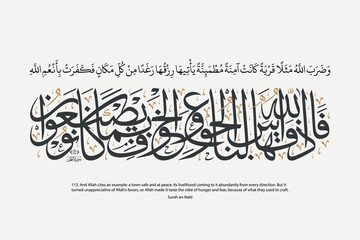 وَضَرَبَ اللَّهُ مَثَلًا قَرْيَةً كَانَتْ آمِنَةً مُطْمَئِنَّةً يَأْتِيهَا رِزْقُهَا رَغَدًا مِنْ كُلِّ مَكَانٍ فَكَفَرَتْ بِأَنْعُمِ اللَّهِ
فَأَذَاقَهَا اللَّهُ لِبَاسَ الْجُوعِ وَالْخَوْفِ بِمَا كَانُوا يَصْنَعُونَ
112. And Allah cites an example: a town safe and at peace, its livelihood coming to it abundantly from every direction. But it
turned unappreciative of Allah's favors, so Allah made it taste the robe of hunger and fear, because of what they used to craft.
Surah an-Nahl